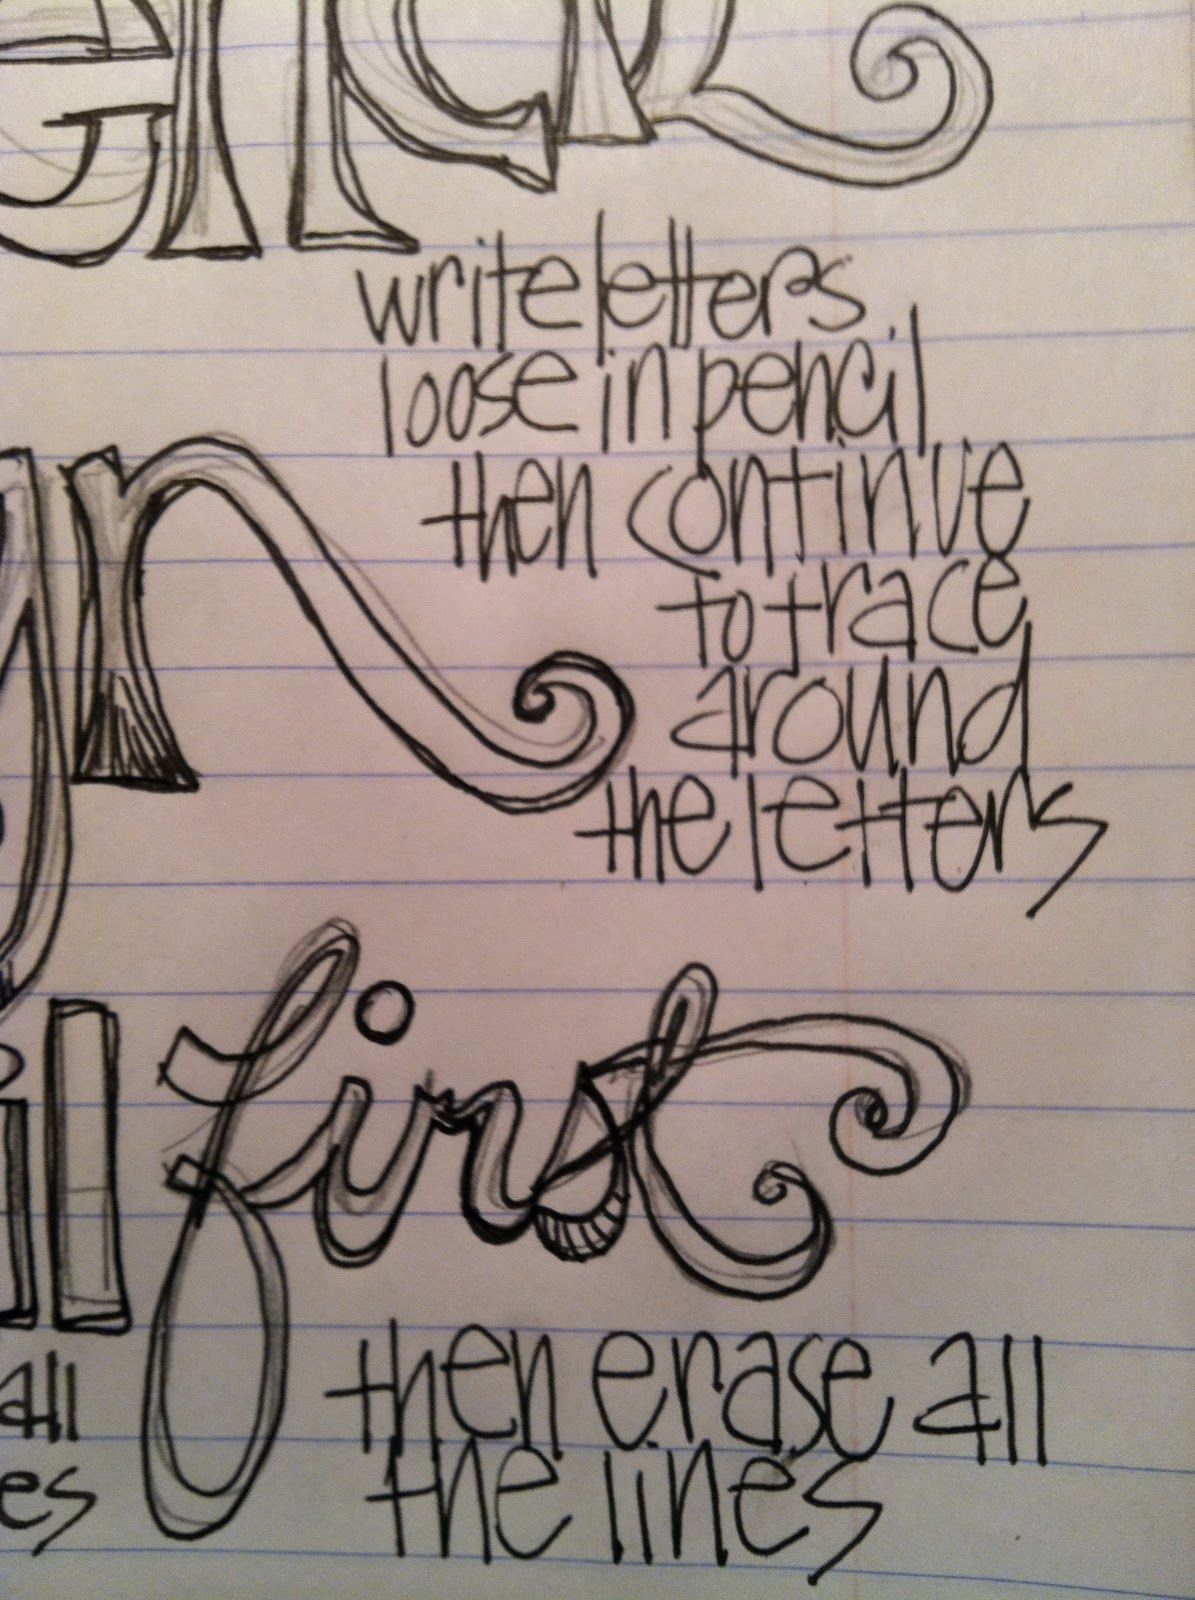 write letters
loose in pencil
then continue
to trace
around
the letters
first
then erase all
all
the lines
es